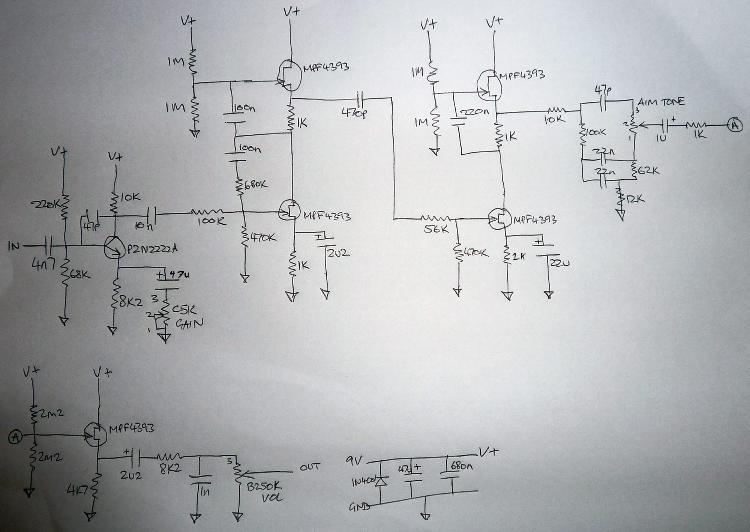 V+
V+
V+
V+
1M
MPF4393
1M
MPF4393
1M
100n
1K
470p
1M
220n
1K
10K
47p
AIM TONE
3
2
1
100K
1U
+
1K
A
100n
680K
22n
22n
62K
12K
V+
V+
220K
10K
47p
10n
100K
MPF4393
470K
1K
2U2
56K
MPF4393
470K
2K
+
22U
IN
4n7
68K
P2N2222A
8K2
+
47U
3
2
1
C5K
GAIN
V+
V+
2M2
A
MPF4393
2M2
4K7
+
2U2
8K2
1n
3
B250K
VOL
OUT
9V
V+
+
680n
GND